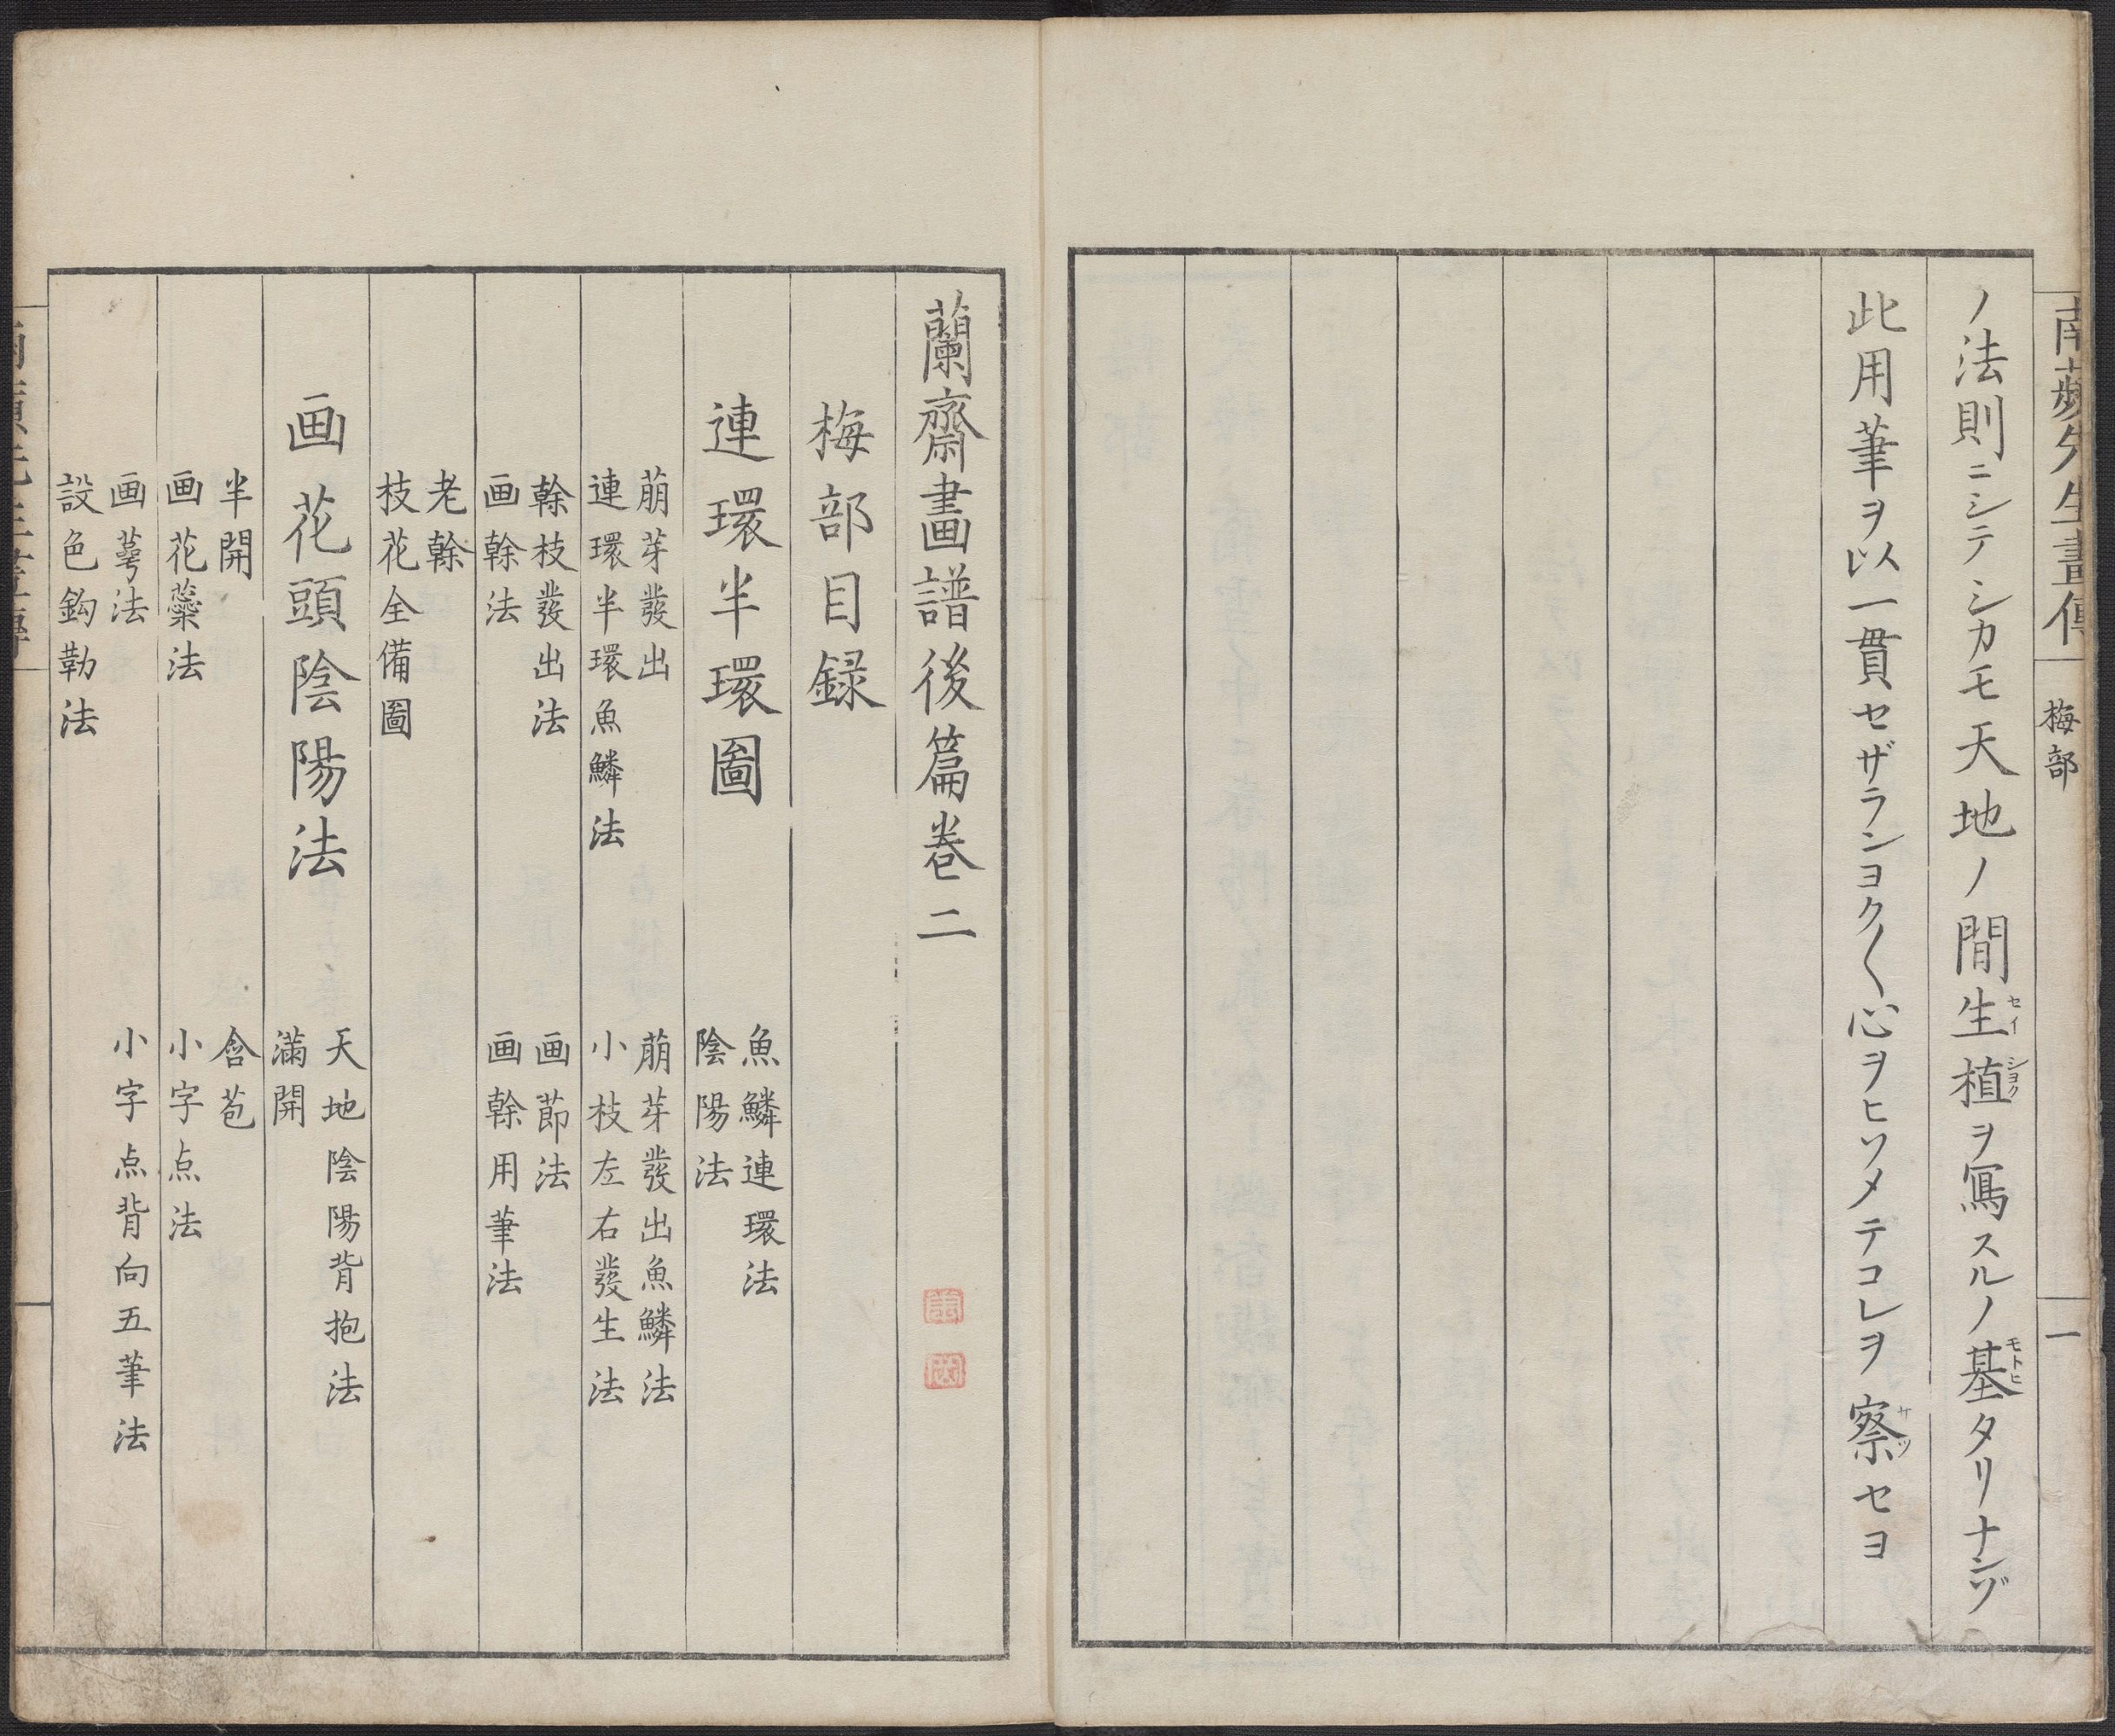 南蘋先生畫傳
梅部
一
ノ法則ニシテシカモ天地ノ間生植ヲ寫スルノ基タリナンゾ
セイ
ショク
モトヒ
此用筆ヲ以一貫セザランヨク〱心ヲヒソメテコレヲ察セヨ
サツ
蘭齋畫譜後篇卷二
梅部目録
連環半環圖
魚鱗連環法
陰陽法
萠芽發出
連環半環魚鱗法
萠芽發出魚鱗法
小枝左右發生法
榦枝發出法
画榦法
画節法
画榦用筆法
老榦
枝花全備圖
画花頭陰陽法
天地陰陽背抱法
滿開
半開
画花蘂法
含苞
小字点法
画萼法
設色鈎勒法
小字点背向五筆法